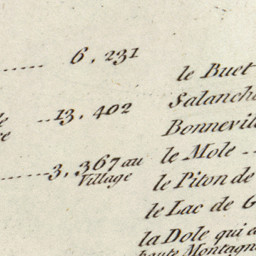 6,231
13,402
3,367 au
Village
le Buet
Bonnevill
le Mole
le Piton de
le Lac de G
la Dole qui a
haute Montagn